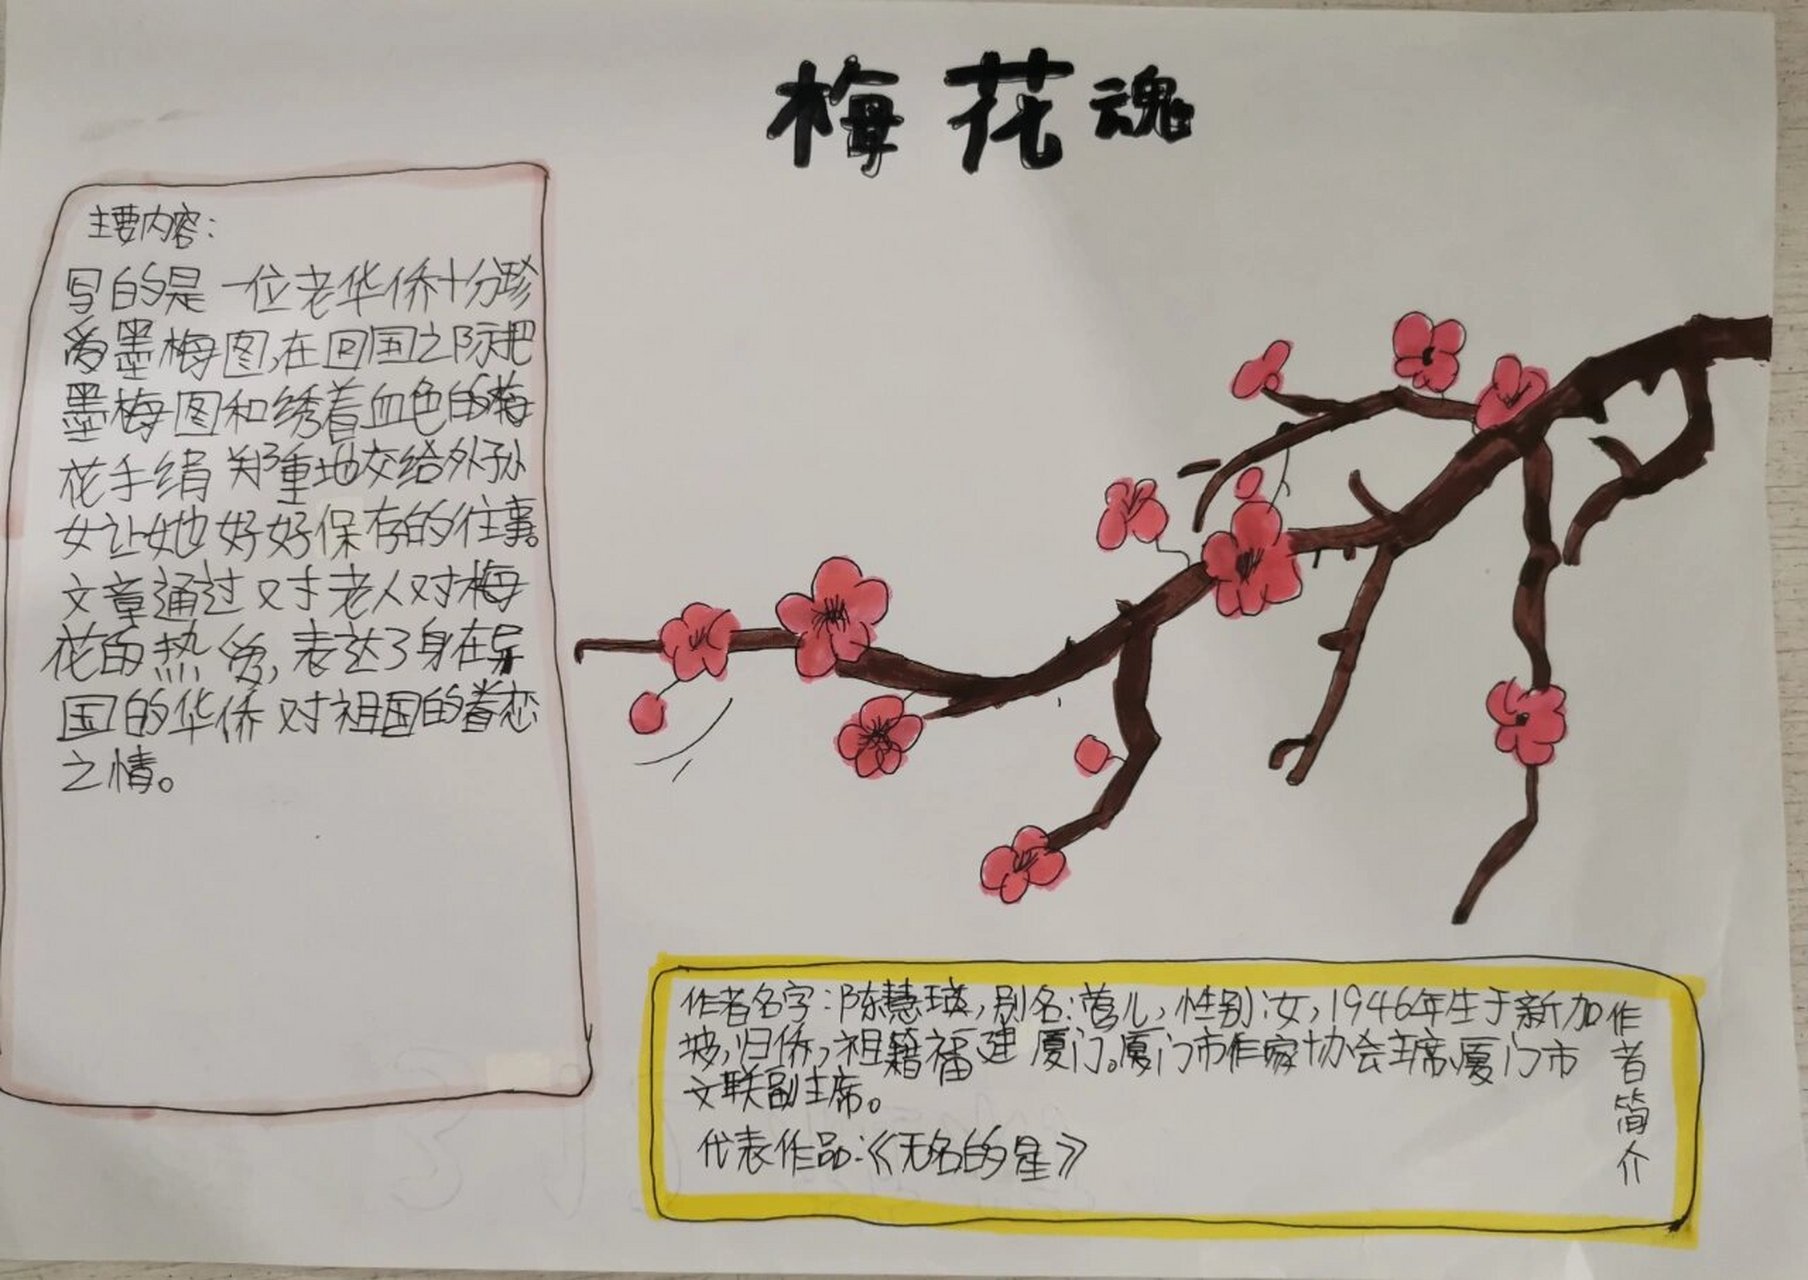 梅花魂
主要内容：
写的是一位老华侨十分珍
爱墨梅图,在回国之际把
墨梅图和绣着血色的梅
花手绢郑重地交给外孙
女让她好好保存的往事。
文章通过对老人对梅
花的热爱,表达了身在异
国的华侨对祖国的眷恋
之情。
作者名字:陈慧瑛,别名:莺儿,性别:女,1946年生于新加
坡,归侨,祖籍福建厦门。厦门市作家协会主席、厦门市
文联副主席。
代表作品:《无名的星》
作者简介